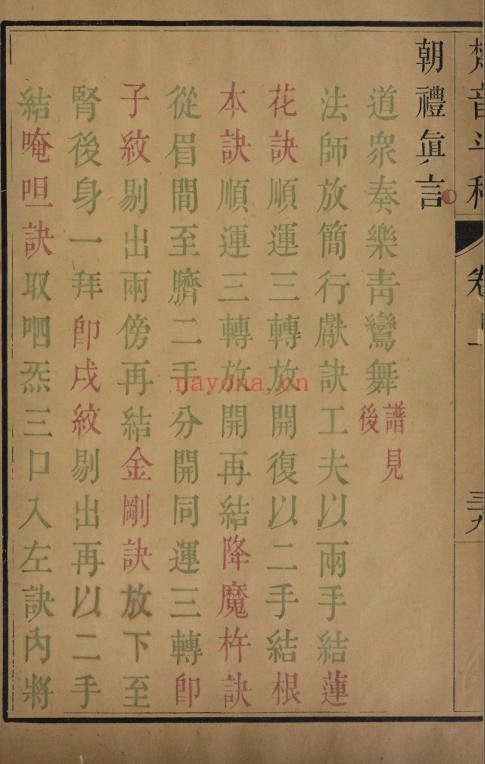 梵音斗科 卷上 三九
朝禮眞言
道眾奏樂青鸞舞譜見後
法師放簡行獻訣工夫以兩手結蓮
花訣順運三轉放開復以二手結根
本訣順運三轉放開再結降魔杵訣
從眉間至臍二手分開同運三轉卽
子紋剔出兩傍再結金剛訣放下至
腎後身一拜卽戌紋剔出再以二手
結唵呾訣取呬炁三口入左訣內將
nayona.cn